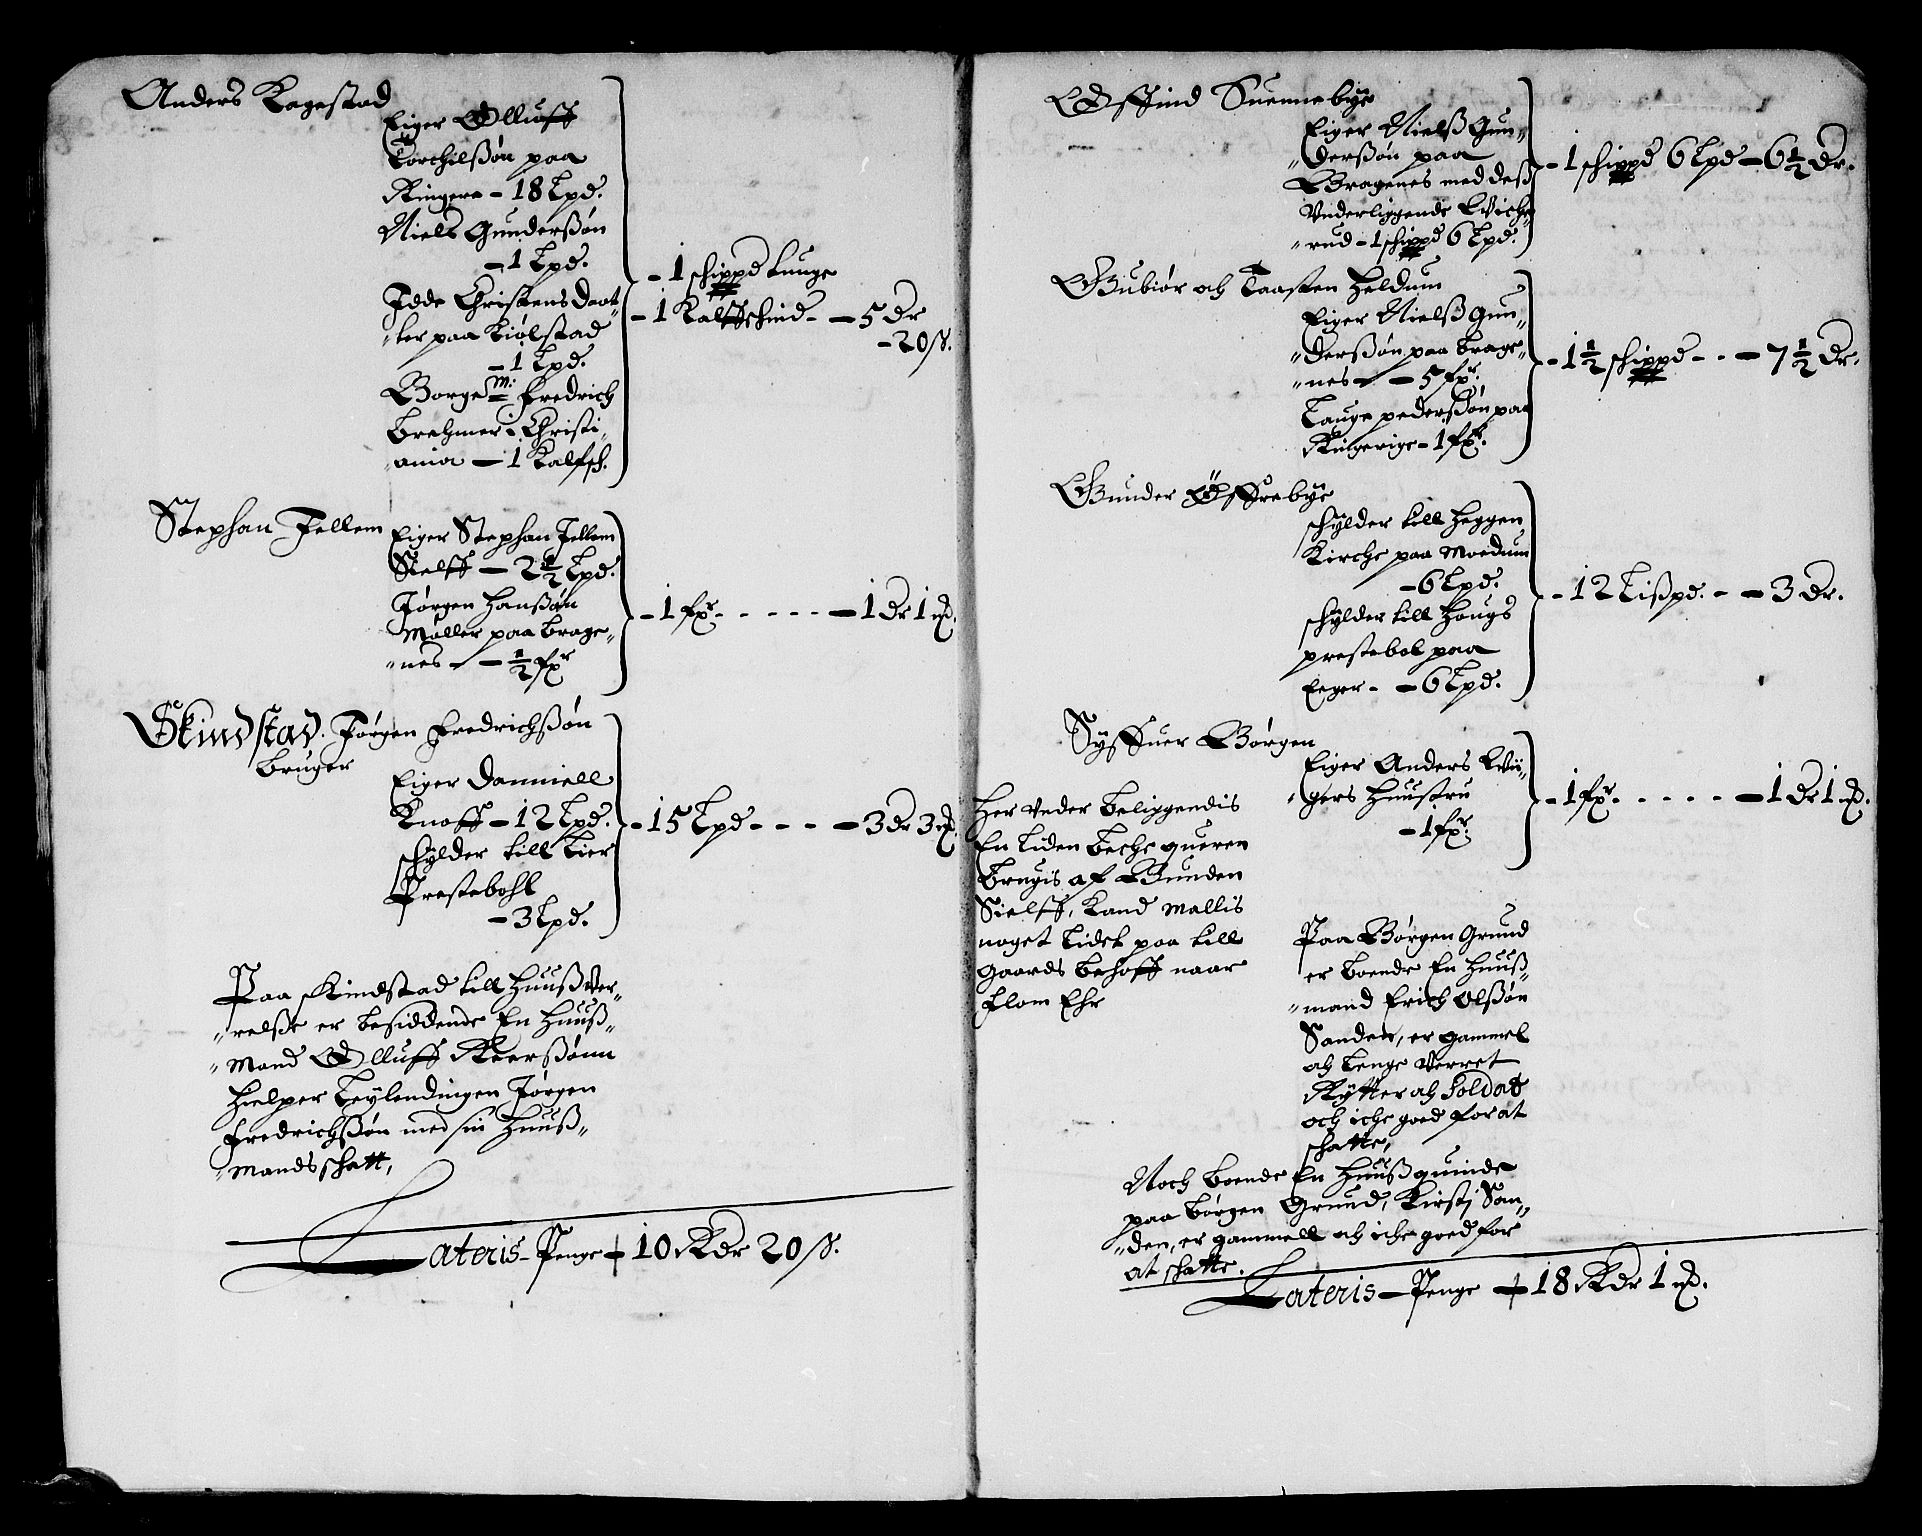 Anders Kagestad
Eiger Olluff
Torchilßøn paa
Ringere - 18 Lpd.
Niels Gunderßøn
- 1 Lpd.
Idde Christens daat-
-ter paa Kiølstad
- 1 Lpd.
Borge m: Fredrich
Brehmer i Christi-
-ania - 1 Kalfsch.
- 1 schippd tunge
- 1 Kalffschind - - 5 dr
- 20 s.
Stephan Jellem
Eiger Stephan Jellem
Sielff - 2 1/2 Lpd.
Jørgen Hanßøn
Møller paa Brage-
-nes - - 1/2 fxr
- 1 fxr - - - - - 1 dr 1 mk.
Skindstad. Jørgen Fredrichßøn
Bruger
Eiger Danniell
Knoff - 12 Lpd.
schylder till Lier
Prestebohl
- 3 Lpd.
- 15 Lpd - - - - 3 dr 3 mk.
Paa Skindstad till Huuß Ver-
-relße er besiddende En Huuß-
-Mand Olluff Reerßønn
Hielper Leylendingen Jørgen
Fredrichßøn med sin Huuß-
-Mands schatt,
Lateris - Penge + 10 Rdr 20 s.
Effuind Suennebye
Eiger Nielß Gun-
-derßøn paa
Bragenes med deß
Vnderliggende Wiche-
-rud - 1 schippd 6 Lpd.
- 1 schippd 6 Lpd - 6 1/2 dr.
Gubiør och Taasten Heldum
Eiger Nielß Gun-
-derßøn paa Brage-
-nes - - 5 fxr.
Tauge pederßøn paa
Ringerige - 1 fxr.
- 1 1/2 schippd - - - 7 1/2 dr.
Gunder Øffrebye
schylder till Heggen
Kirche paa Moedum
- 6 Lpd.
schylder till Hougs
prestebol paa
Eeger - - 6 Lpd.
- 12 Lißpd. - - 3 dr.
Syffuer Børgen
Eiger Anders Wii-
-gers Huustru
- 1 fxr.
- 1 fxr. - - - - - 1 dr 1 mk.
Her vnder beliggendis
En liden beche queren
brugis af Bunden
Sielff, Kand mallis
noget lidet paa till
gaards behoff naar
flom Ehr
Paa Børgen Grund
er boende En Huuß-
-mand Erich Olßøn
Sanden, er gammel
och lenge Verret
Rytter och Soldat
och iche goed for at
schatte,
Noch boende En Huuß quinde
paa Børgen Grund, Kirstj San-
-den, er gammell och iche goed for
at schatte.
Lateris - Penge + 18 Rdr 1 mk.